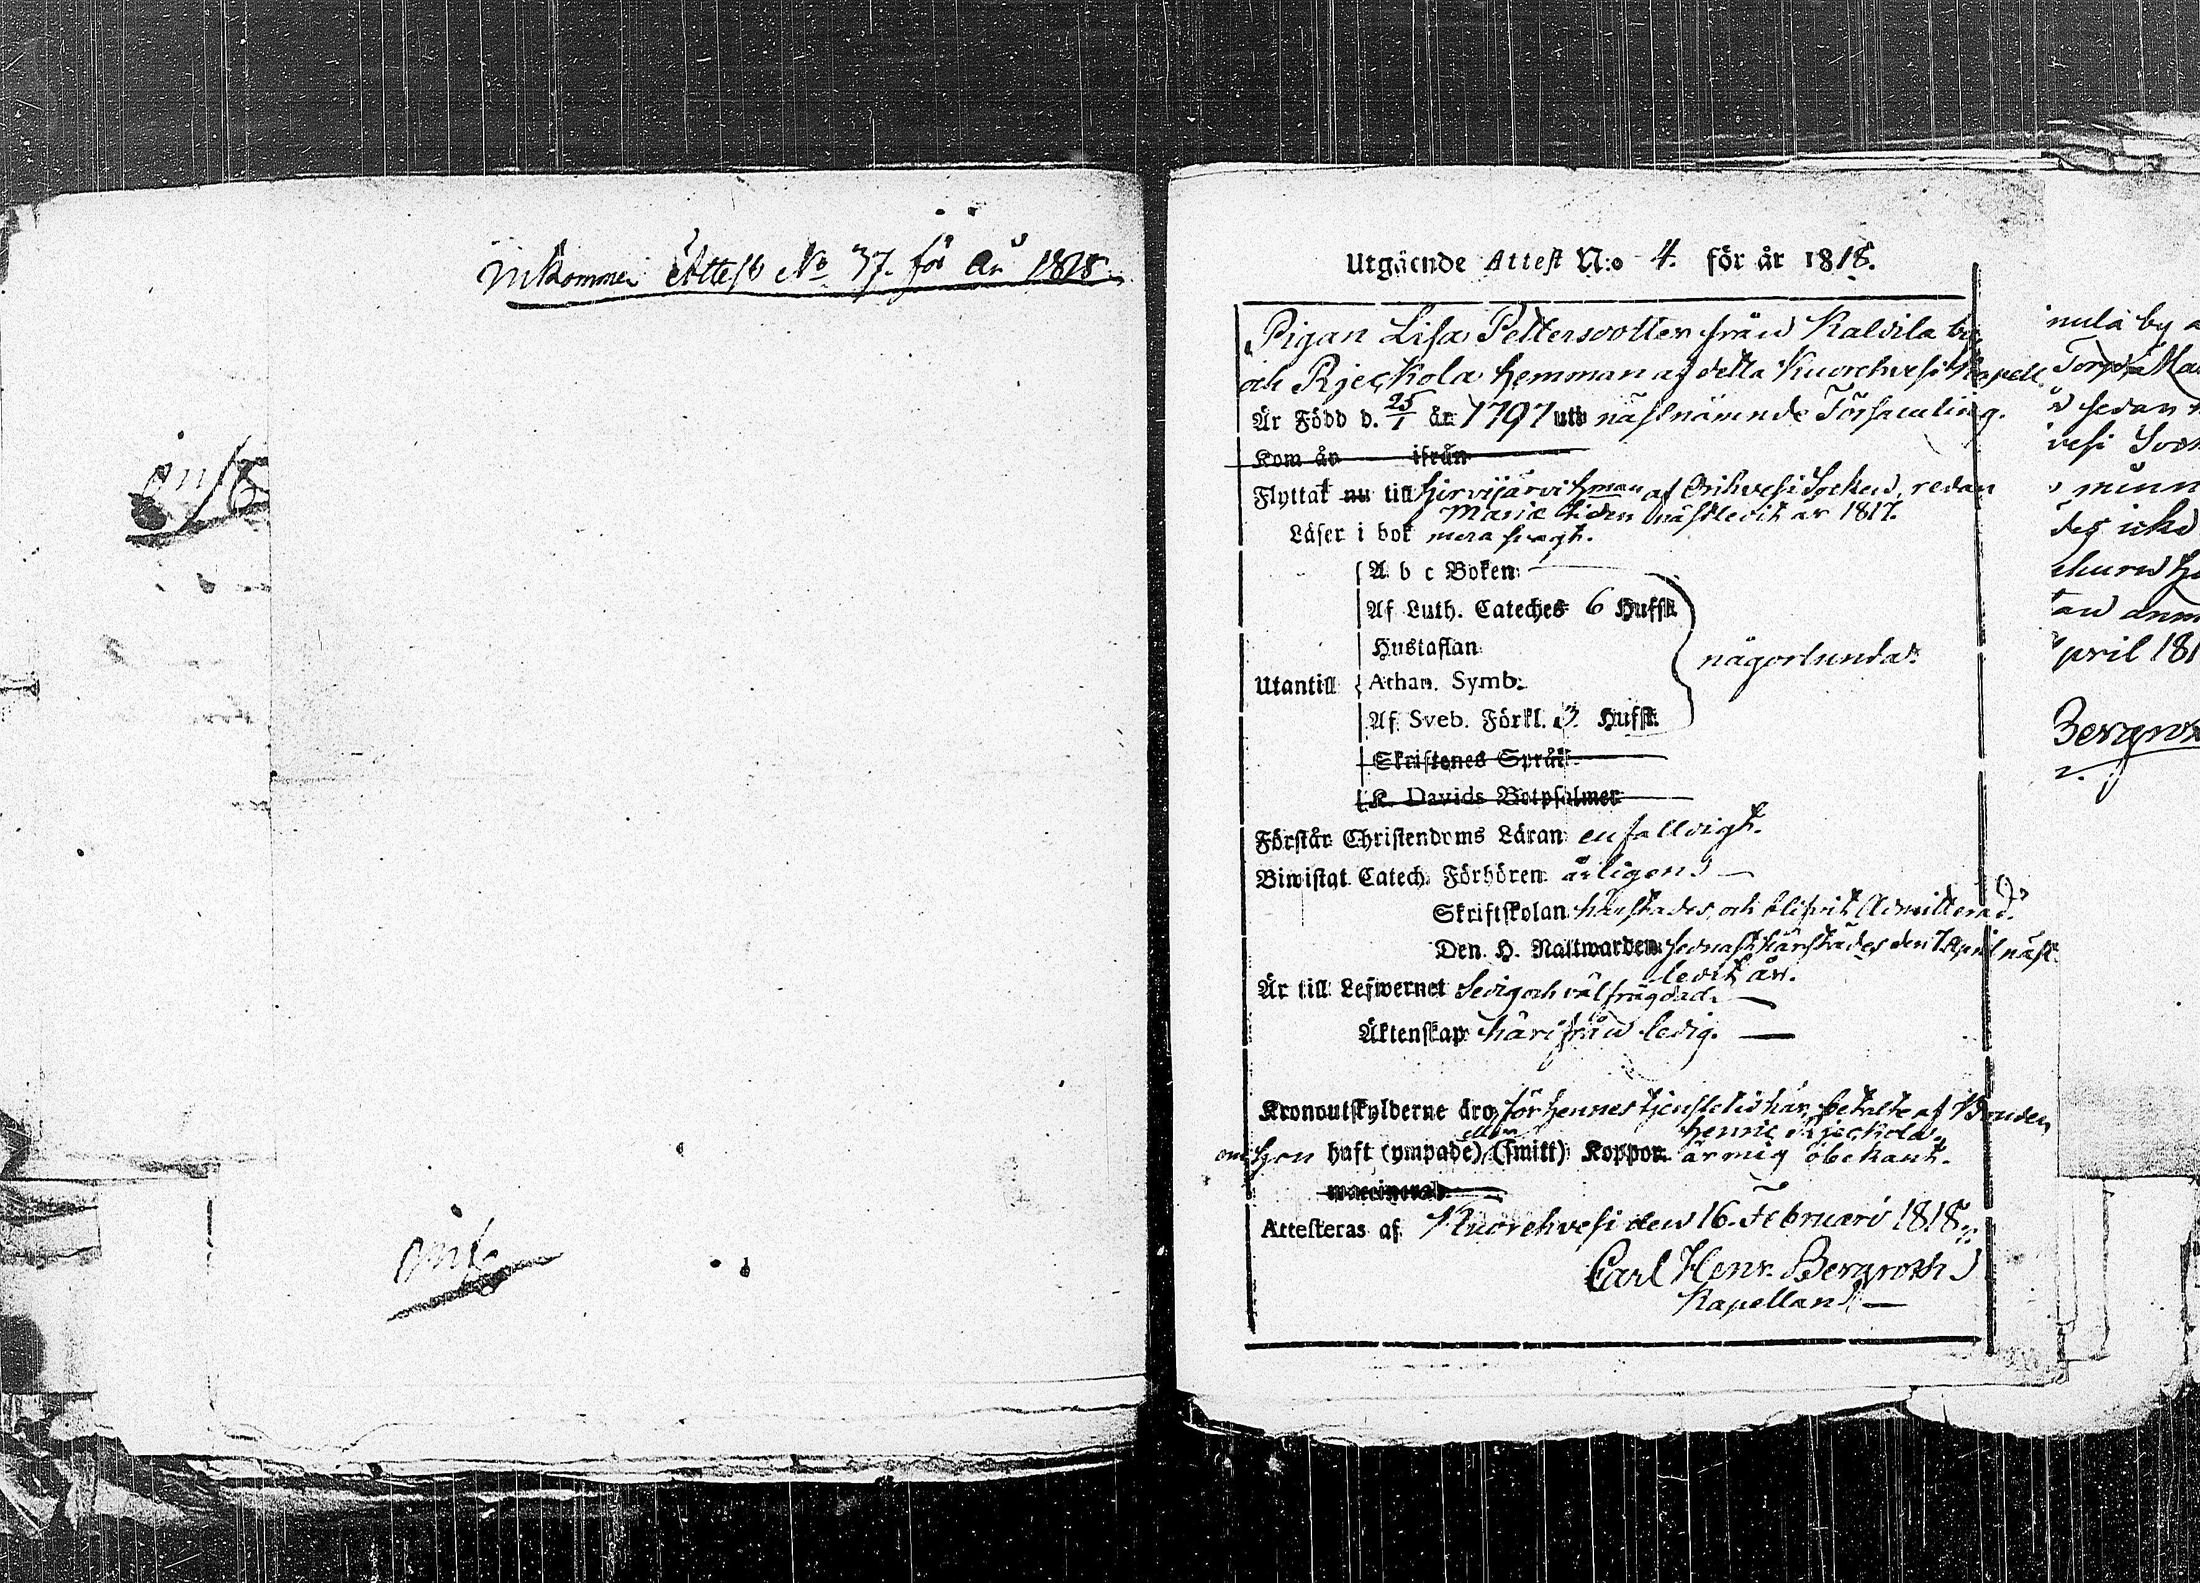 Inkommen Attest No 37. för år 1818.
Utgående Attest N:o 4. för år 1818.
Pigan Lisa Pettersdotter från Kaldila by
och Rjeckola hemman af detta Kuorehvesi Kapell.
Är Född d. 25/1 år 1797 uti nästnämnde Församling.
Kom år ifrån
Flyttat nu till Hirvijärvi hman af Orihvesi Socken, redan
Mariæ tiden nästledit år 1817.
Läser i bok mera svagt.
A b c Boken
Af Luth. Cateches 6 Hufst.
Hustaflan
någorlunda.
Utantill Athan. Symb.
Af Sveb. Förkl. 3. Hufst.
Skriftenes Språk
K. Davids Botpsalmer
Förstår Christendoms Läran enfalldigt.
Biwistat Catech. Förhören årligen
Skriftskolan härstädes, och blifvit Admitterad.
Den H. Nattwarden sednast härstädes den 7 April näst
ledit år.
Är till Lefwernet sedig och välfrägdad.
Äktenskap härifrån ledig.
Kronoutskylderne äro för hennes tjenstetid här, betalte af Bonden
Henric Rjeckola.
om hon haft (ympade) eller (smitt) Koppor är mig obekant.
waccinerad
Attesteras af Kuorehvesi den 16. Februari 1818.
Carl Henr. Bergroth
Kapellan
nula by
Torp
sedan
vesi
minn
des icke
april 181
Bergroth